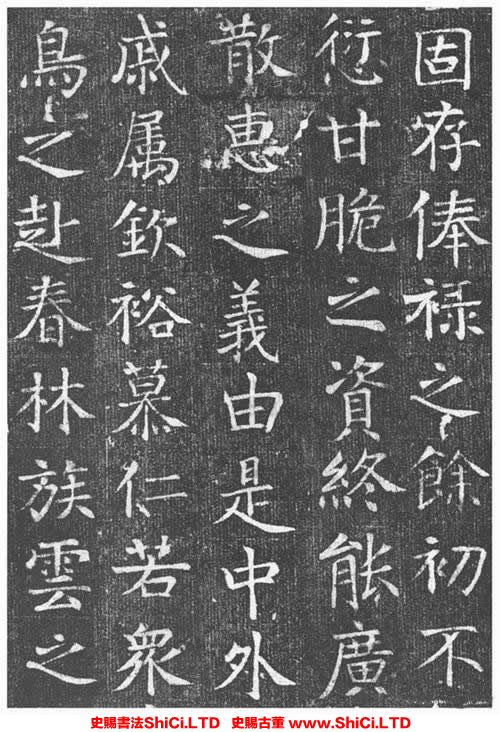 固存俸禄之餘初不
愆甘脆之資終能廣
散惠之義由是中外
戚属欽裕慕仁若衆
鳥之赴春林族雲之
史賜書法ShiCi.LTD 史賜古董 www.ShiCi.LTD